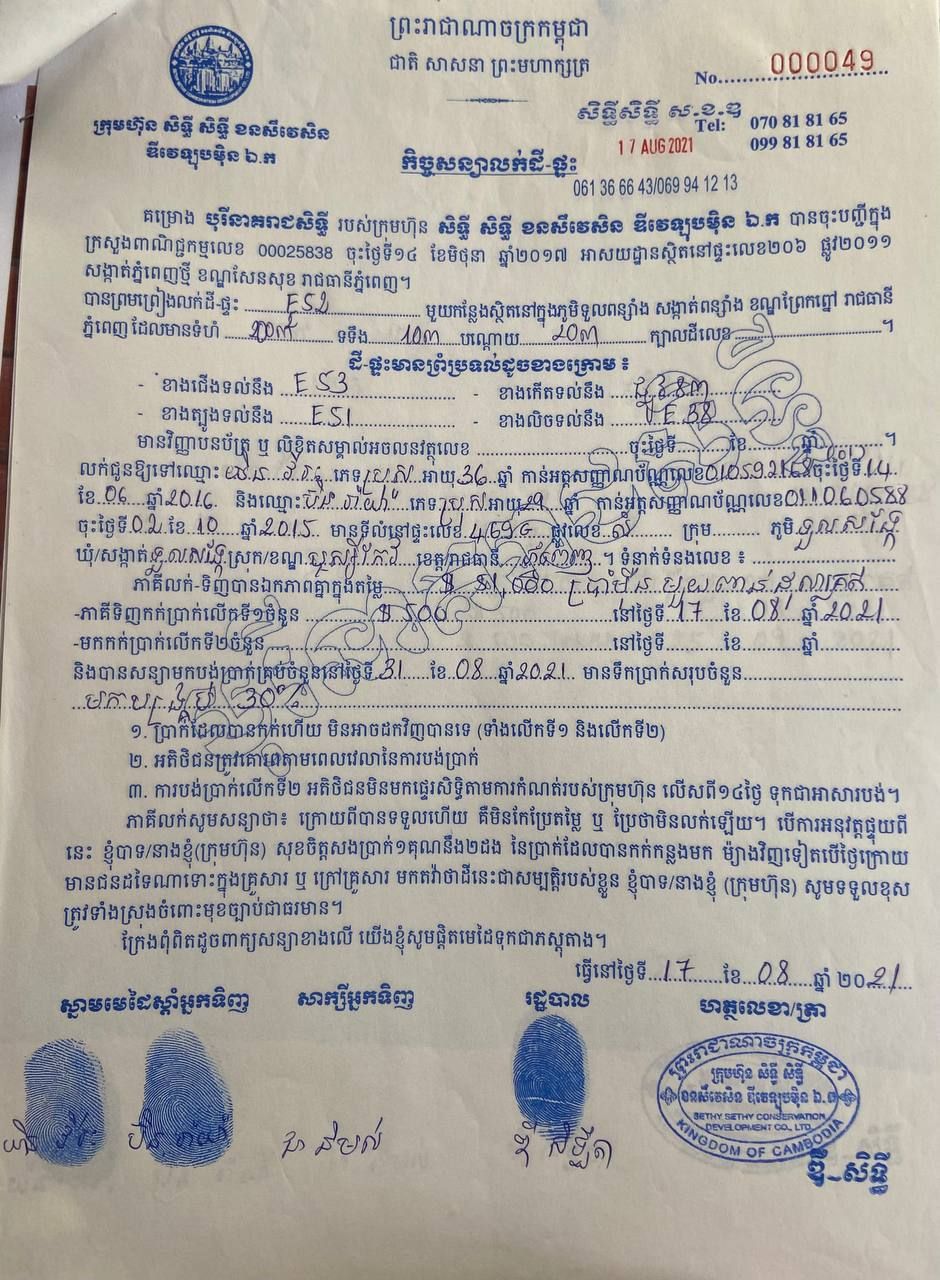 ព្រះរាជាណាចក្រកម្ពុជា
ជាតិ សាសនា ព្រះមហាក្សត្រ
No. 000049
ក្រុមហ៊ុន សិទ្ធី សិទ្ធី ខនសឹវេសិន
ឌីវេឡុបម៉ិន ឯ.ក
សិទ្ធីសិទ្ធី ស.ខ.ឌ
Tel: 070 81 81 65
099 81 81 65
17 AUG 2021
កិច្ចសន្យាលក់ដី-ផ្ទះ
061 36 66 43/069 94 12 13
គម្រោង បុរីនាគរាជសិទ្ធី របស់ក្រុមហ៊ុន សិទ្ធី សិទ្ធី ខនសឹវេសិន ឌីវេឡុបម៉ិន ឯ.ក បានចុះបញ្ជីក្នុង
ក្រសួងពាណិជ្ជកម្មលេខ 00025838 ចុះថ្ងៃទី១៤ ខែមិថុនា ឆ្នាំ២០១៧ អាសយដ្ឋានស្ថិតនៅផ្ទះលេខ២០៦ ផ្លូវ២០១១
សង្កាត់ភ្នំពេញថ្មី ខណ្ឌសែនសុខ រាជធានីភ្នំពេញ។
បានព្រមព្រៀងលក់ដី-ផ្ទះ ES2 មួយកន្លែងស្ថិតនៅក្នុងភូមិទួលពន្សាំង សង្កាត់ពន្សាំង ខណ្ឌព្រែកព្នៅ រាជធានី
ភ្នំពេញ ដែលមានទំហំ ទទឹង 10ម បណ្តោយ 20ម ក្បាលដីលេខ ។
ដី-ផ្ទះមានព្រំប្រទល់ដូចខាងក្រោម ៖
- ខាងជើងទល់នឹង ES3 - ខាងកើតទល់នឹង
- ខាងត្បូងទល់នឹង ES1 - ខាងលិចទល់នឹង
មានវិញ្ញាបនប័ត្រ ឬ លិខិតសម្គាល់អចលនវត្ថុលេខ ចុះថ្ងៃទី ខែ ឆ្នាំ ។
លក់ជូនឱ្យទៅឈ្មោះ ភេទ ប្រុស អាយុ 36 ឆ្នាំ កាន់អត្តសញ្ញាណប័ណ្ណលេខ ចុះថ្ងៃទី 14
ខែ 06 ឆ្នាំ 2016 និងឈ្មោះ ភេទ ប្រុស អាយុ 29 ឆ្នាំ កាន់អត្តសញ្ញាណប័ណ្ណលេខ 011060588
ចុះថ្ងៃទី 02 ខែ 10 ឆ្នាំ 2015 មានទីលំនៅផ្ទះលេខ ផ្លូវលេខ ក្រុម ភូមិ ទួលសង្កែ
ឃុំ/សង្កាត់ ទួលសង្កែ ស្រុក/ខណ្ឌ ឫស្សីកែវ ខេត្ត/រាជធានី ភ្នំពេញ ។ ទំនាក់ទំនងលេខ ៖
ភាគីលក់-ទិញបានឯកភាពគ្នាក្នុងតម្លៃ $ 51,000 ប្រាំម៉ឺនមួយពាន់ដុល្លារគត់
-ភាគីទិញកក់ប្រាក់លើកទី១ចំនួន $ 500 នៅថ្ងៃទី 17 ខែ 08 ឆ្នាំ 2021
-មកកក់ប្រាក់លើកទី២ចំនួន នៅថ្ងៃទី ខែ ឆ្នាំ
និងបានសន្យាមកបង់ប្រាក់គ្រប់ចំនួននៅថ្ងៃទី 31 ខែ 08 ឆ្នាំ 2021 មានទឹកប្រាក់សរុបចំនួន
មកបង្គ្រប់ 30%
១. ប្រាក់ដែលបានកក់ហើយ មិនអាចដកវិញបានទេ (ទាំងលើកទី១ និងលើកទី២)
២. អតិថិជនត្រូវគោរពតាមពេលវេលានៃការបង់ប្រាក់
៣. ការបង់ប្រាក់លើកទី២ អតិថិជនមិនមកផ្ទេរសិទ្ធិតាមការកំណត់របស់ក្រុមហ៊ុន លើសពី១៤ថ្ងៃ ទុកជាអាសារបង់។
ភាគីលក់សូមសន្យាថា៖ ក្រោយពីបានទទួលហើយ គឺមិនកែប្រែតម្លៃ ឬ ប្រែថាមិនលក់ឡើយ។ បើការអនុវត្តផ្ទុយពី
នេះ ខ្ញុំបាទ/នាងខ្ញុំ(ក្រុមហ៊ុន) សុខចិត្តសងប្រាក់១គុណនឹង២ដង នៃប្រាក់ដែលបានកក់កន្លងមក ម៉្យាងវិញទៀតបើថ្ងៃក្រោយ
មានជនដទៃណាទោះក្នុងគ្រួសារ ឬ ក្រៅគ្រួសារ មកតវ៉ាថាដីនេះជាសម្បត្តិរបស់ខ្លួន ខ្ញុំបាទ/នាងខ្ញុំ (ក្រុមហ៊ុន) សូមទទួលខុស
ត្រូវទាំងស្រុងចំពោះមុខច្បាប់ជាធរមាន។
ក្រែងពុំពិតដូចពាក្យសន្យាខាងលើ យើងខ្ញុំសូមផ្តិតមេដៃទុកជាភស្តុតាង។
ធ្វើនៅថ្ងៃទី 17 ខែ 08 ឆ្នាំ ២០21
ស្នាមមេដៃស្តាំអ្នកទិញ សាក្សីអ្នកទិញ រដ្ឋបាល ហត្ថលេខា/ត្រា
ព្រះរាជាណាចក្រកម្ពុជា
ក្រុមហ៊ុន សិទ្ធី សិទ្ធី
ខនសឹវេសិន ឌីវេឡុបម៉ិន ឯ.ក
SETHY SETHY CONSERVATION
DEVELOPMENT CO., LTD
KINGDOM OF CAMBODIA
ឌី-សិទ្ធី